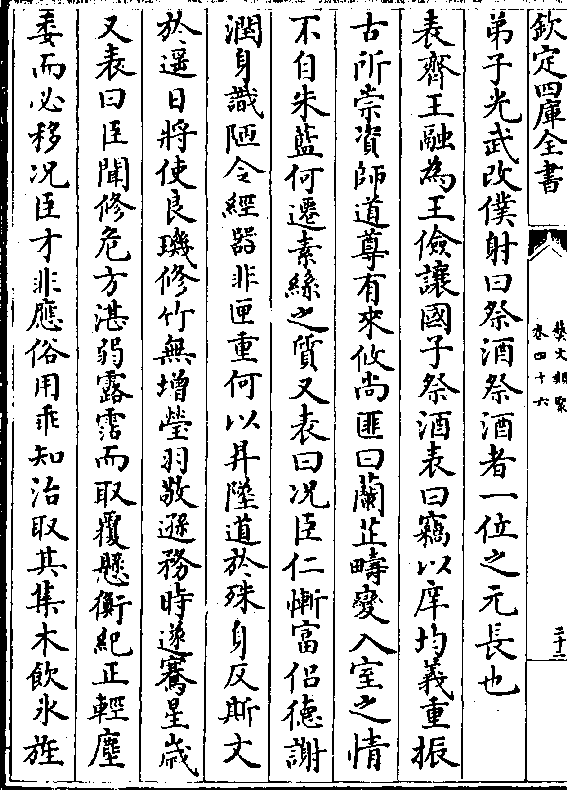 欽定四庫全書
藝文類聚
卷四十六
二十三
弟子光武改僕射曰祭酒祭酒者一位之元長也
表齊王融為王儉讓國子祭酒表曰竊以庠均義重振
古所崇資師道尊有來攸尚匪曰蘭芷疇變入室之情
不自朱藍何遷素絲之質又表曰况臣仁慚富侣德謝
潤身識陋令經器非匣重何以昇墜道於殊身反斯文
於遥日將使良璣修竹無增瑩羽敬遜務時遂騫星歲
又表曰臣聞修危方湛弱露霑而取覆懸衡紀正輕塵
委而必移况臣才非應俗用乖知治取其集木飲氷旌